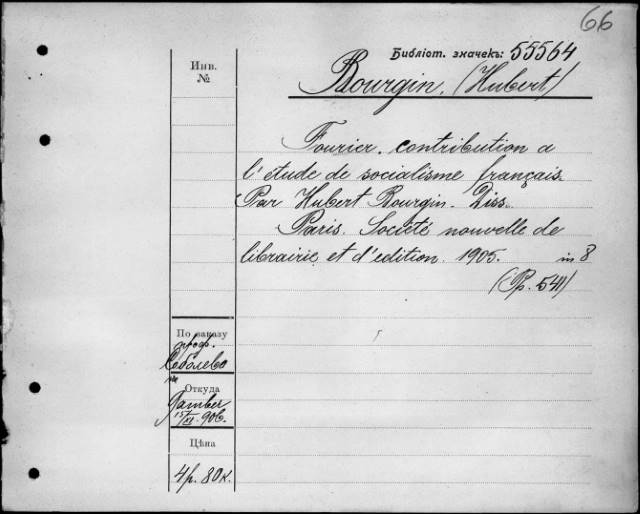 66
Библіот. значекъ: 55564
Инв.
№
Bourgin. (Hubert)
Fourier. contribution a
l'étude de socialisme français.
Par Hubert Bourgin. Diss.
Paris. Société nouvelle de
librairie et d'edition. 1905. in 8
(Pp. 541)
По заказу
проф.
Соболева
Откуда
15/XI. 906.
Цѣна
4р. 80к.